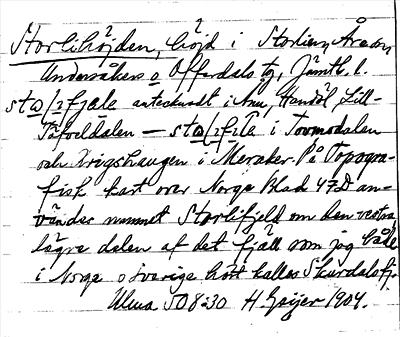 Storlihöjden, höjd i Storlien, Åre sn,
Undersåkers o Offerdals tg, Jämtl. l.
antecknadt i Ann, Handöl, Lill-
Tåfvoldalen — i Tovmodalen
och Krigshaugen i Meraker. På Topogra-
fisk kart over Norge Blad 47D an-
vändes namnet Storlifjeld om den vestra
lägre delen af det fjäll som jag både
i Norge o Sverige hört kallas Skurdalsfj.
Ulma 508:30 H Geijer 1904.